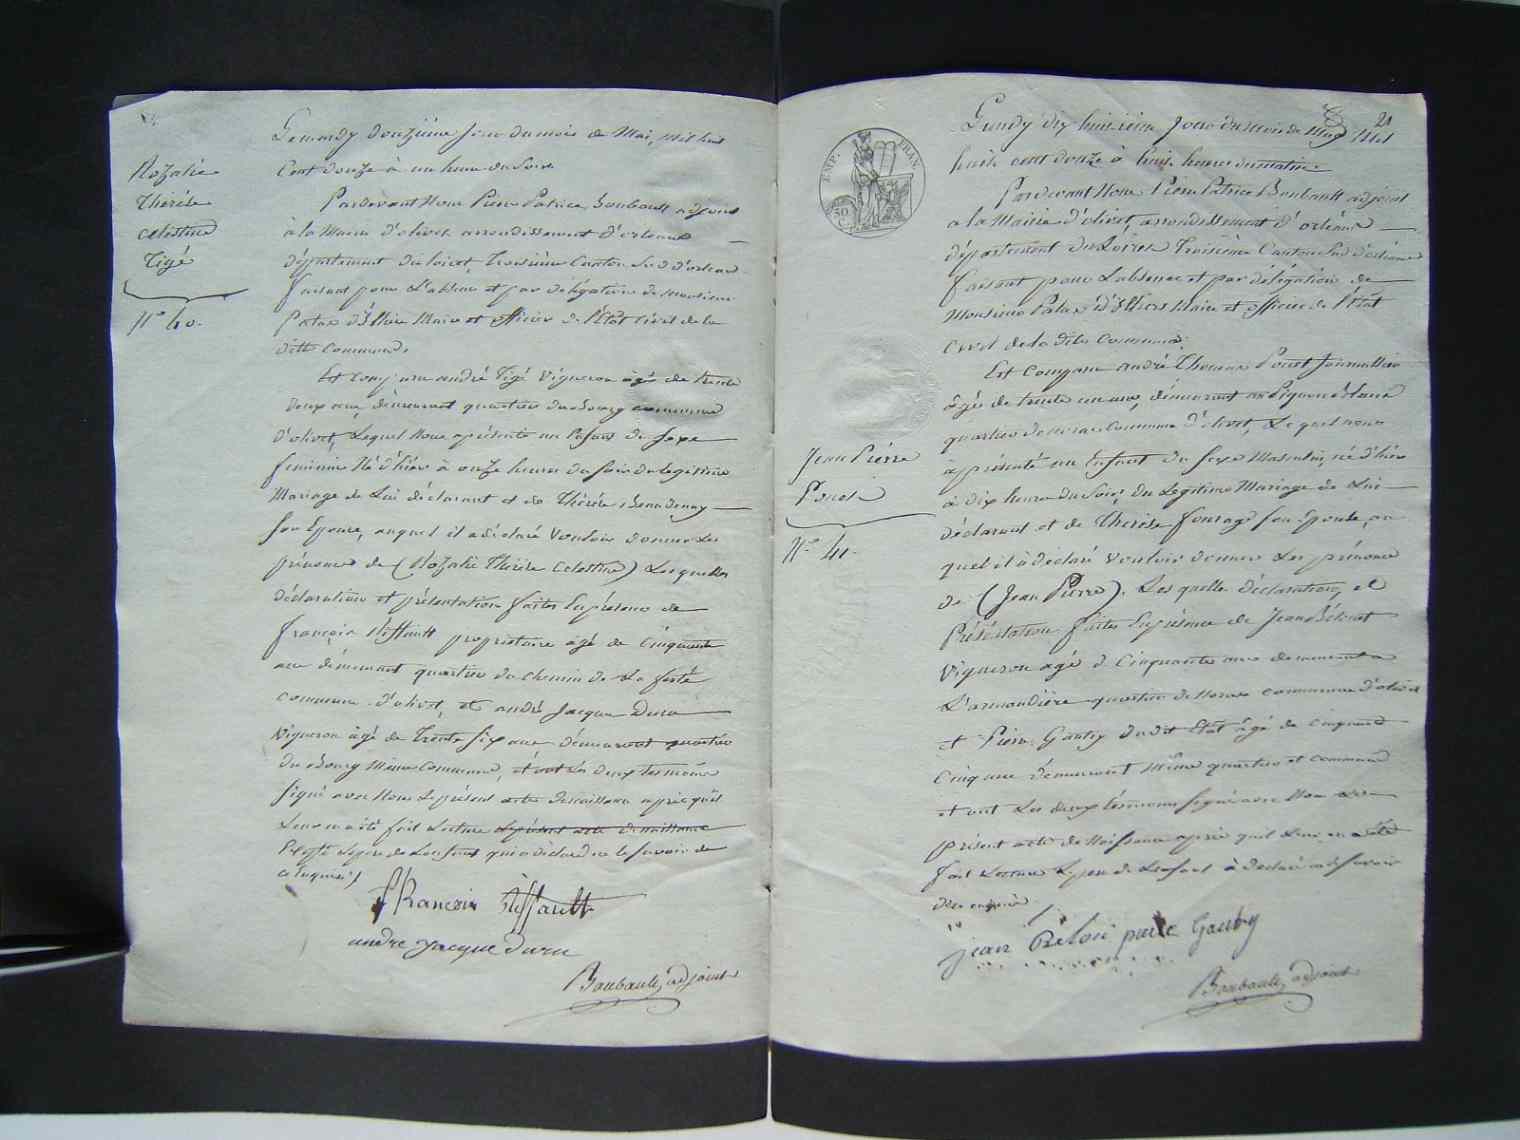 Rozalie
Thérèse
celestine
Tigé
N.° 40.
douzième Jour du mois de Mai, mil huit
Cent douze à un heure du Soir
Pardevant Nous Pierre Patrice Boubault adjoint
à la Mairie d'olivet arrondissement d'orleans
département du loiret, troisième Canton Sud d'orleans
faisant pour L'absence et par délégation de monsieur
Patas d'Illiers Maire et officier de l'Etat Civil de la
ditte commune.
Est comparu andré Tigé Vigneron âgé de trente
deux ans, démeurant quartier du Bourg commune
d'olivet, Lequel Nous à présenté un Enfant du Sexe
feminin Né d'hier à onze heures du Soir du legitime
Mariage de Lui déclarant et de Thérèse
Son Epouse, auquel il a déclaré Vouloir donner Les
prénoms de (Rozalie Thérèse Celestine) Lesquelles
déclaration et présentation faites En présence de
françois Riffault propriétaire âgé de Cinquante
ans démeurant quartier du chemin de La ferté
commune d'olivet, et andré Jacque Duru
Vigneron âgé de Trente Six ans, démeurant quartier
du Bourg Même Commune, et ont Les deux temoins
Signé avec Nous Le présent acte de naissance après qu'il
Leur en a été fait Lecture Le présent acte de naissance
Le père de L'enfant qui a déclaré ne le Savoir de
ce requis
fRancois Riffault
andre Jacque duru
Boubault, adjoint
21
EMP. FRAN.
50 C
Lundy dix huitième Jour du mois de May Mil
huit cent douze à huit heures du matin
Pardevant Nous Pierre Patrice Boubault adjoint
a la Mairie d'olivet, arrondissement d'orléans
département du Loiret Troisième Canton Sud d'orléans
faisant pour L'absence et par délégation de
Monsieur Patas d'Illiers Maire et officier de l'Etat
Civil de la dite Commune.
Est Comparu andré Thomas Poret Journallier
âgé de trente cinq ans, démeurant
quartier de commune d'olivet, Lequel nous
à présenté un Enfant du Sexe Masculin, né d'hier
à dix heures du Soir, du Legitime Mariage de Lui
déclarant et de Thérèse Son épouse, au
quel il à déclaré Vouloir donner Les prénoms
de (Jean Pierre). Les quelle déclaration, et
Présentation faites En présence de Jean
Vigneron âgé de Cinquante ans démeurant a
L'armandière quartier de commune d'olivet
et Pierre Gauby du dit Etat âgé de cinquante
Cinq ans démeurant même quartier et commune
et ont Les deux témoins Signé avec Nous Le
présent acte de Naissance après qu'il Leur en a été
fait Lecture Le père de L'enfant à déclaré ne Savoir
de ce requis
Jean Pierre
Poret
N.° 41.
Gauby
Boubault, adjoint